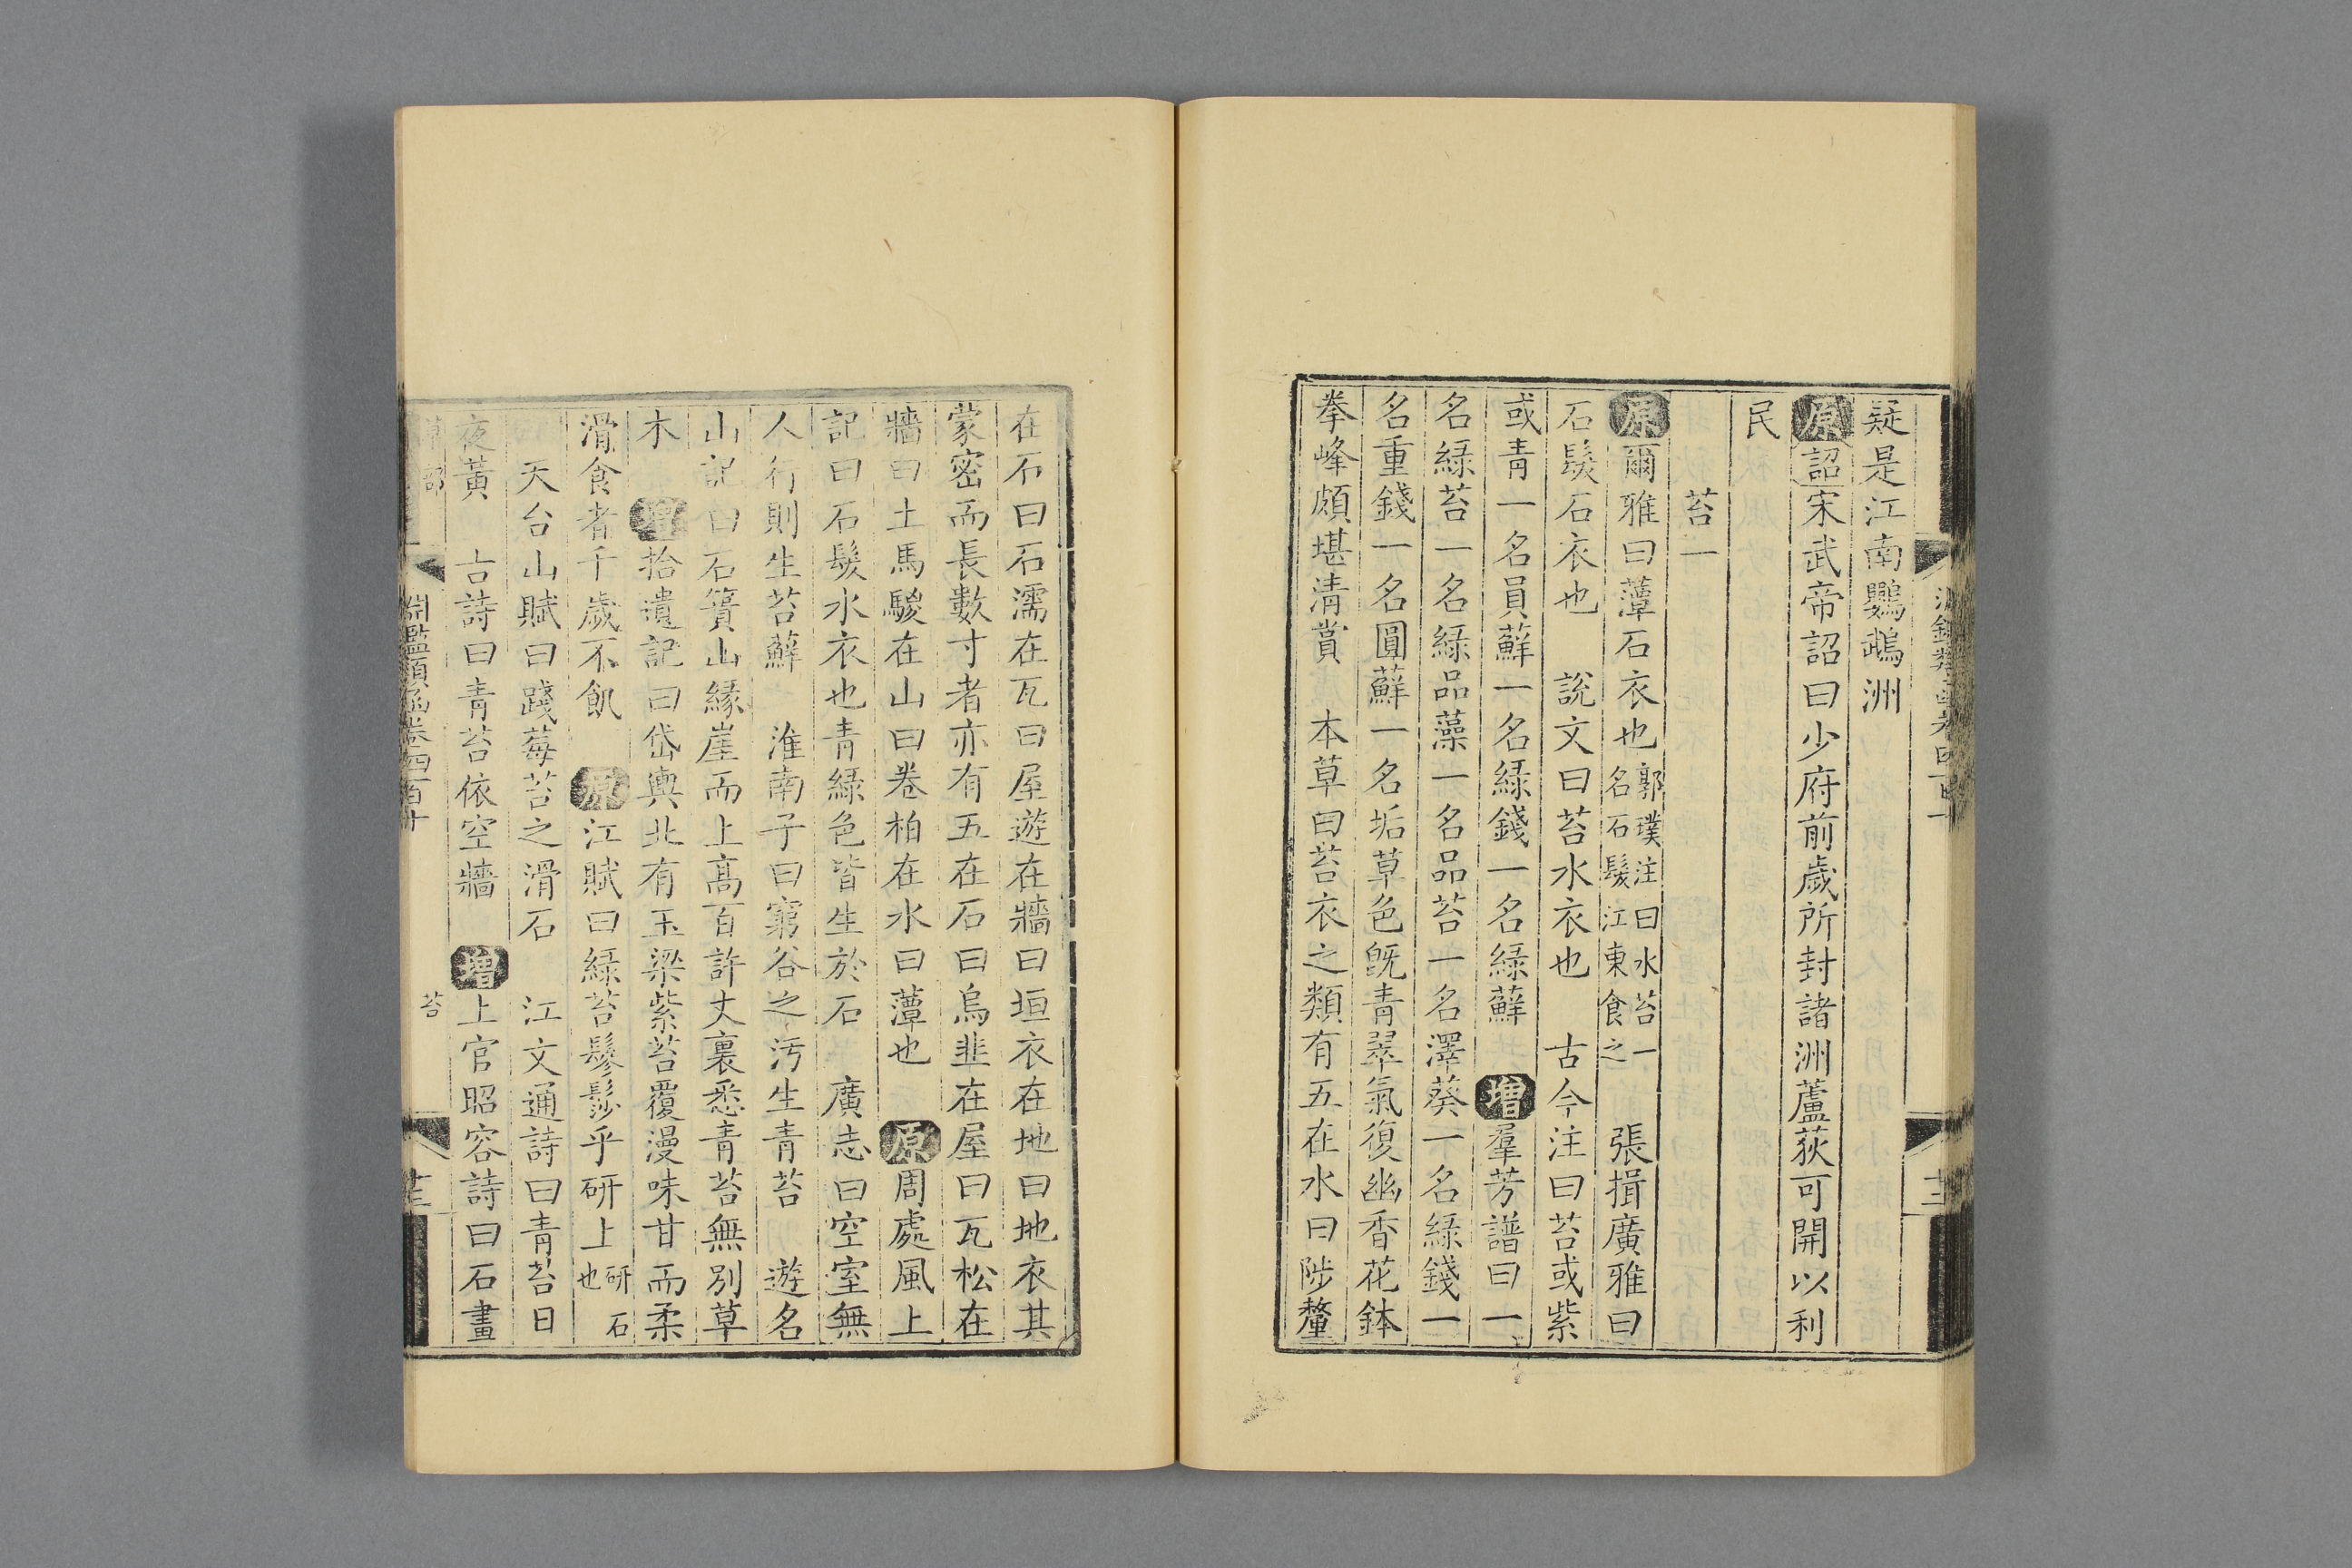 疑是江南鸚鵡洲
原詔宋武帝詔曰少府前歲所封諸洲蘆荻可開以利
民
苔一
原爾雅曰藫石衣也郭璞注曰水苔一名石髮江東食之 張揖廣雅曰
石髮石衣也 說文曰苔水衣也 古今注曰苔或紫
或青一名員蘚一名綠錢一名綠蘚 增羣芳譜曰一
名綠苔一名綠品藻一名品苔一名澤葵一名綠錢一
名重錢一名圓蘚一名垢草色旣青翠氣復幽香花鉢
拳峰頗堪清賞 本草曰苔衣之類有五在水曰陟釐
在石曰石濡在瓦曰屋遊在牆曰垣衣在地曰地衣其
蒙密而長數寸者亦有五在石曰烏韭在屋曰瓦松在
牆曰土馬駿在山曰卷柏在水曰藫也 原周處風土
記曰石髮水衣也青綠色皆生於石 廣志曰空室無
人行則生苔蘚 淮南子曰窮谷之汚生青苔 遊名
山記曰石簣山緣崖而上高百許丈裏悉青苔無別草
木 增拾遺記曰岱輿北有玉梁紫苔覆漫味甘而柔
滑食者千歲不飢 原江賦曰綠苔鬖髿乎研上研石也
天台山賦曰踐莓苔之滑石 江文通詩曰青苔日
夜黃 古詩曰青苔依空牆 增上官昭容詩曰石畫
淵鑑類函卷四百十
苔